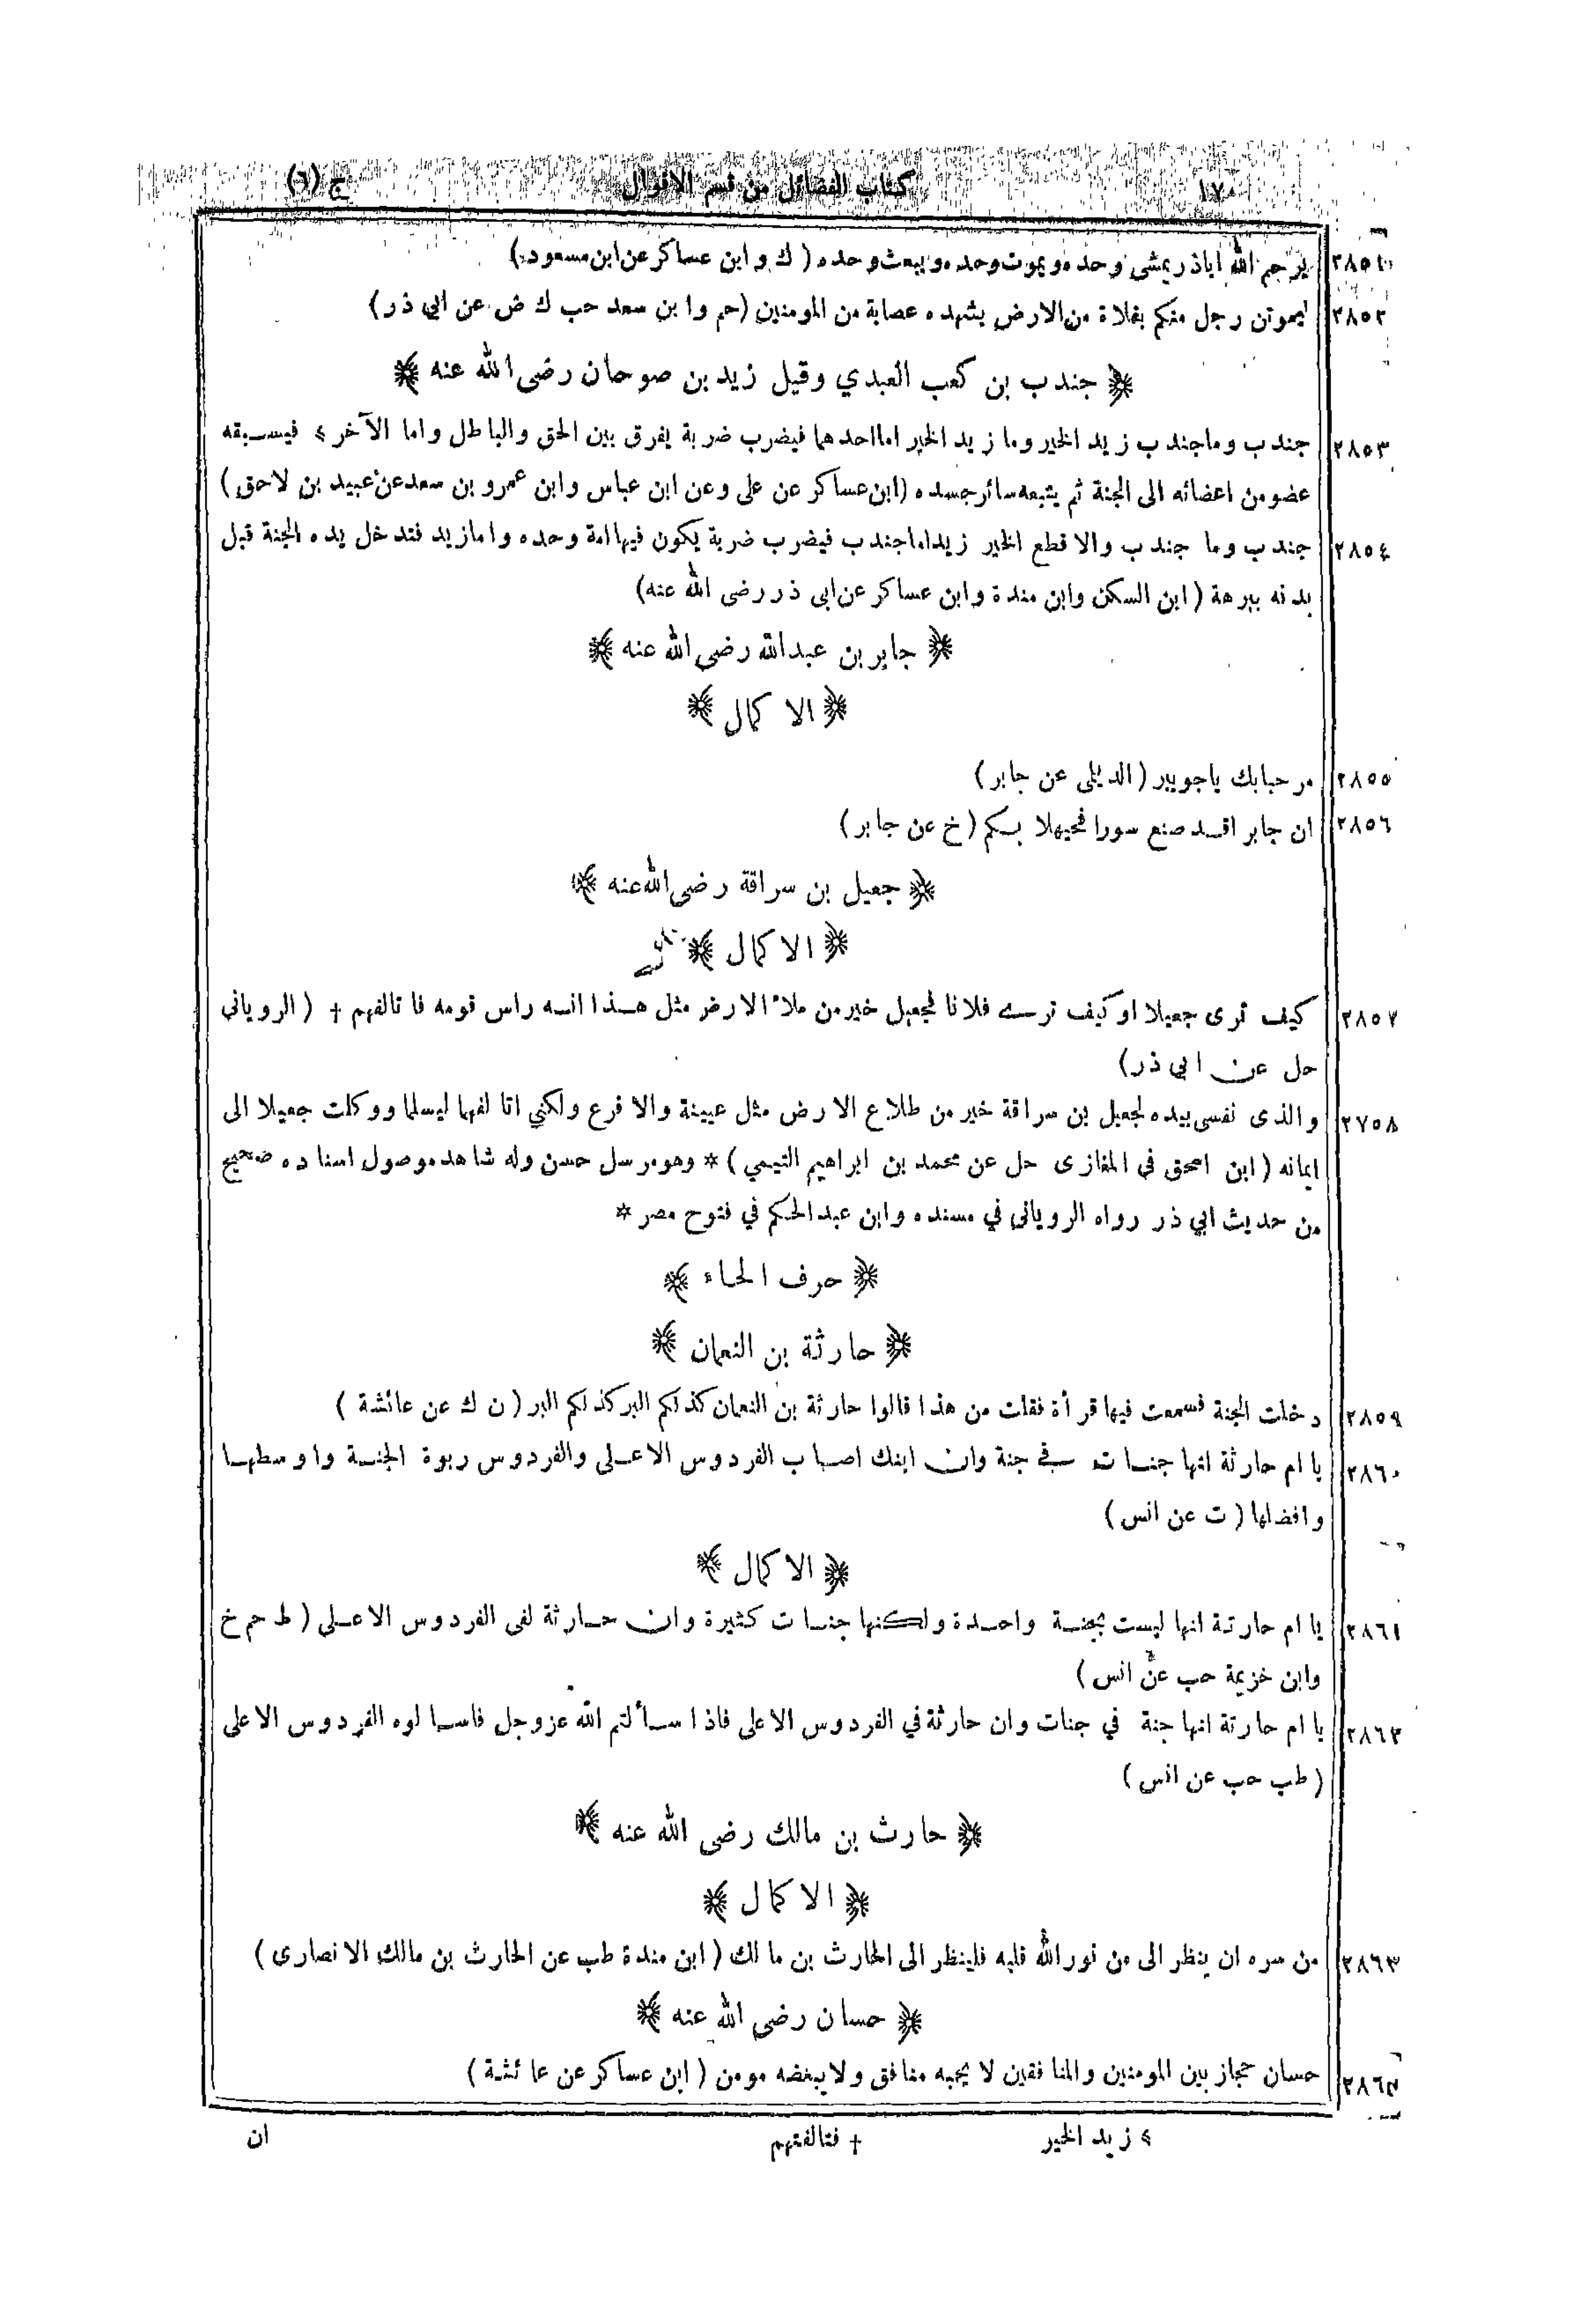 ١٧٠ كتاب الفضائل من قسم الاقوال ج (٦)
٢٨٥١ يرحم الله اباذر يمشى وحده ويموت وحده ويبعث وحده ( ك وابن عساكر عن ابن مسعود )
٢٨٥٢ ليموتن رجل منكم بفلاة من الارض يشهده عصابة من المومنين (حم وابن سعد حب ك ض عن ابي ذر)
﴿ جندب بن كعب العبدي وقيل زيد بن صوحان رضى الله عنه ﴾
٢٨٥٣ جندب وما جندب زيد الخير وما زيد الخير اما احدهما فيضرب ضربة يفرق بين الحق والباطل واما الآخر > فيسبقه
عضو من اعضائه الى الجنة ثم يتبعه سائر جسده (ابن عساكر عن على وعن ابن عباس وابن عمرو بن سعد عن عبيد بن لاحق)
٢٨٥٤ جندب وما جندب والاقطع الخير زيد اما جندب فيضرب ضربة يكون فيها امة وحده واما زيد فتدخل يده الجنة قبل
بدنه ببرهة ( ابن السكن وابن مندة وابن عساكر عن ابى ذر رضى الله عنه)
﴿ جابر بن عبدالله رضى الله عنه ﴾
﴿ الاكمال ﴾
٢٨٥٥ مرحبا بك ياجويبر (الديلمى عن جابر)
٢٨٥٦ ان جابر اقد صنع سورا فحيهلا بكم (خ عن جابر)
﴿ جعيل بن سراقة رضى الله عنه ﴾
﴿ الاكمال ﴾
٢٨٥٧ كيف ترى جعيلا او كيف ترى فلانا لجعيل خير من ملاء الارض مثل هذا انه راس قومه فاتالفهم † ( الرويانى
حل عن ابي ذر)
٢٧٥٨ والذى نفسى بيده لجعيل بن سراقة خير من طلاع الارض مثل عيينة والاقرع ولكني اتالفهما ليسلما ووكلت جعيلا الى
ايمانه ( ابن اسحق فى المغازى حل عن محمد بن ابراهيم التيمي ) * وهو مرسل حسن وله شاهد موصول اسناده صحيح
من حديث ابي ذر رواه الرويانى في مسنده وابن عبد الحكم في فتوح مصر *
﴿ حرف الحاء ﴾
﴿ حارثة بن النعمان ﴾
٢٨٥٩ دخلت الجنة فسمعت فيها قرأة فقلت من هذا قالوا حارثة بن النعمان كذلكم البر كذلكم البر ( ن ك عن عائشة )
٢٨٦٠ يا ام حارثة انها جنات في جنة وان ابنك اصاب الفردوس الاعلى والفردوس ربوة الجنة واوسطها
وافضلها ( ت عن انس )
﴿ الاكمال ﴾
٢٨٦١ يا ام حارثة انها ليست بجنة واحدة ولكنها جنات كثيرة وان حارثة لفى الفردوس الاعلى ( ط حم خ
وابن خزيمة حب عن انس )
٢٨٦٢ يا ام حارثة انها جنة في جنات وان حارثة في الفردوس الاعلى فاذا سألتم الله عزوجل فاسالوه الفردوس الاعلى
( طب حب عن انس )
﴿ حارث بن مالك رضى الله عنه ﴾
﴿ الاكمال ﴾
٢٨٦٣ من سره ان ينظر الى من نور الله قلبه فلينظر الى الحارث بن مالك ( ابن مندة طب عن الحارث بن مالك الانصارى )
﴿ حسان رضى الله عنه ﴾
حسان حجاز بين المومنين والمنافقين لا يحبه منافق ولا يبغضه مومن ( ابن عساكر عن عائشة )
> زيد الخير † فتالفتهم ان